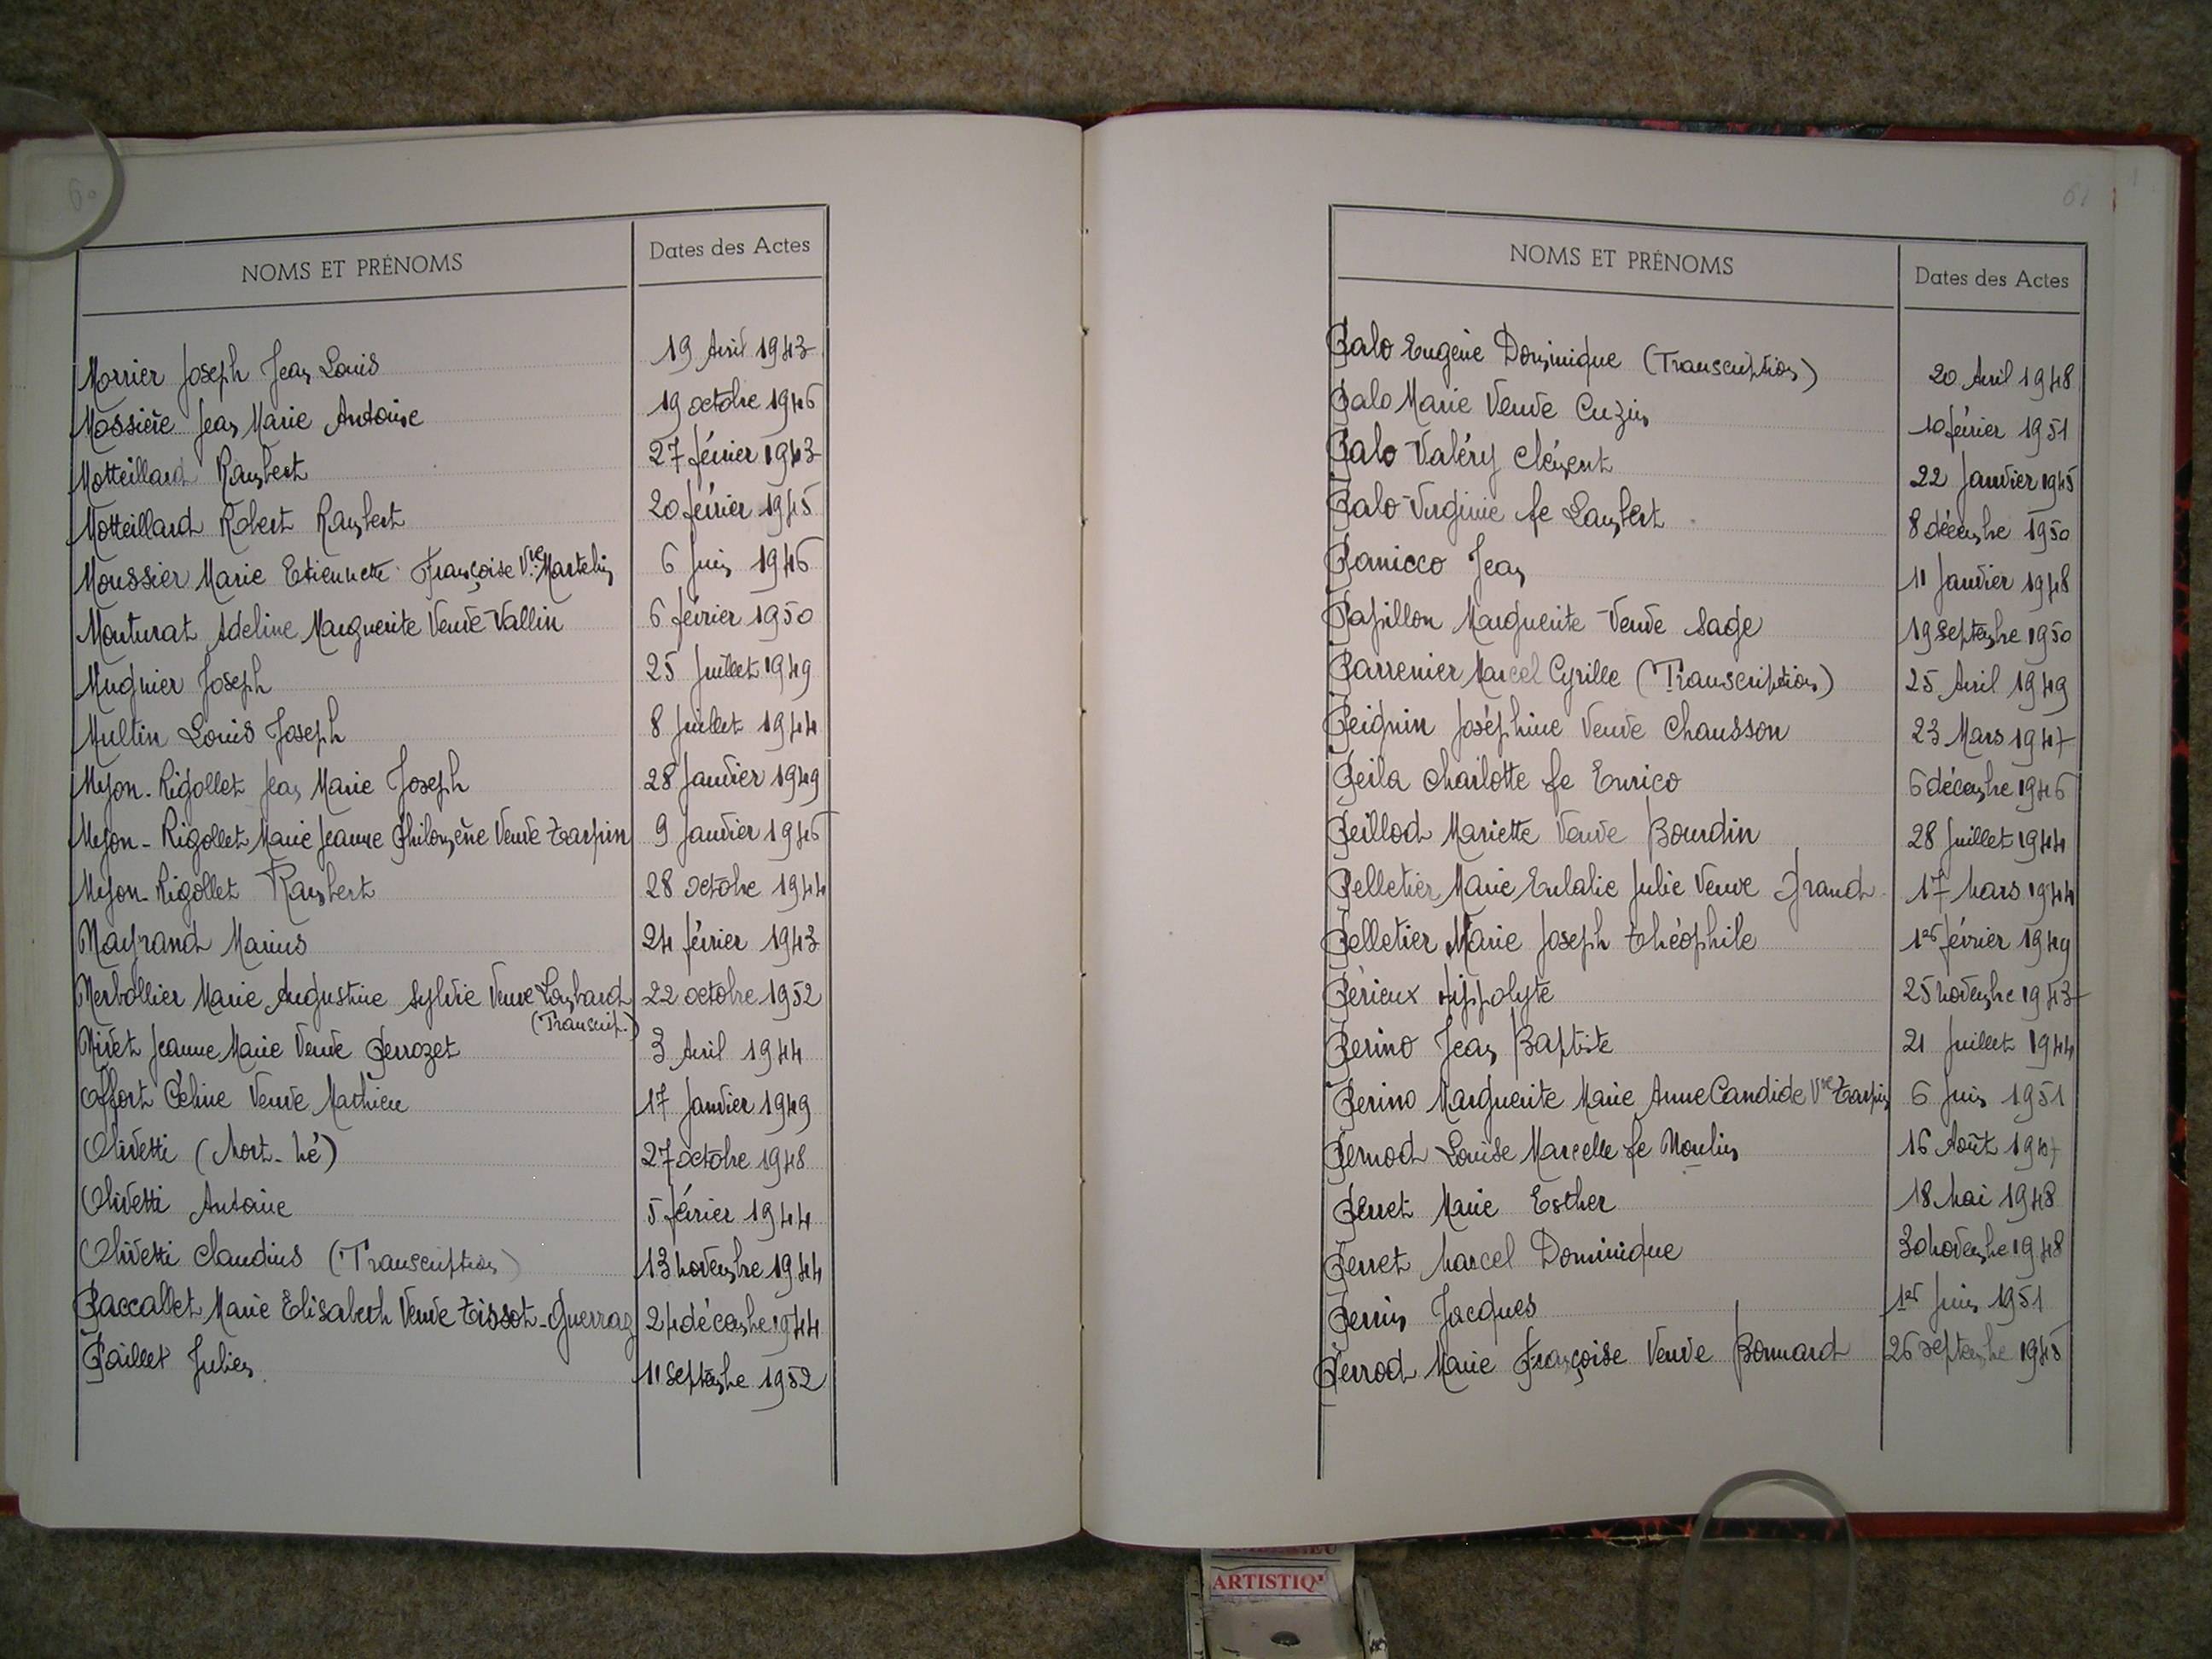 60
NOMS ET PRÉNOMS Dates des Actes
Morrier Joseph Jean Louis 19 Avril 1943
Mossière Jean Marie Antoine 19 octobre 1946
Motteillard Rambert 27 février 1943
Motteillard Robert Rambert 20 février 1945
Moussier Marie Etiennette Françoise Vve Martelin 6 Juin 1946
Mouturat Adeline Marguerite Veuve Vallin 6 février 1950
Mugnier Joseph 25 Juillet 1949
Multin Louis Joseph 8 Juillet 1944
Myon-Rigollet Jean Marie Joseph 28 Janvier 1949
Myon-Rigollet Marie Jeanne Philomène Veuve Tarpin 9 Janvier 1946
Myon-Rigollet Rambert 28 octobre 1944
Nayrand Marius 24 février 1943
Nerbollier Marie Augustine Sylvie Veuve Lombard 22 octobre 1952
(Transcrip.)
Nivet Jeanne Marie Veuve Perrozet 3 Avril 1944
Offort Céline Veuve Mathieu 17 Janvier 1949
Olivetti (Mort-né) 27 octobre 1948
Olivetti Antoine 5 février 1944
Olivetti Claudius (Transcription) 13 novembre 1944
Paccallet Marie Elisabeth Veuve Tissot-Guerraz 24 décembre 1944
Paillet Julien 11 Septembre 1952
61
NOMS ET PRÉNOMS Dates des Actes
Palo Eugène Dominique (Transcription) 20 Avril 1948
Palo Marie Veuve Cuzin 10 février 1951
Palo Valéry Clément 22 Janvier 1945
Palo Virginie fe Lambert 8 décembre 1950
Panicco Jean 11 Janvier 1948
Papillon Marguerite Veuve Sage 19 Septembre 1950
Parrenier Marcel Cyrille (Transcription) 25 Avril 1949
Peignin Joséphine Veuve Chausson 23 Mars 1947
Peila Charlotte fe Enrico 6 décembre 1946
Peillod Mariette Veuve Bourdin 28 Juillet 1944
Pelletier Marie Eulalie Julie Veuve Grand 17 Mars 1944
Pelletier Marie Joseph Théophile 1er février 1949
Périeux Hippolyte 25 novembre 1943
Perino Jean Baptiste 21 Juillet 1944
Perino Marguerite Marie Anne Candide Vve Tarpin 6 Juin 1951
Pernod Louise Marcelle fe Moulin 16 Août 1947
Perret Marie Esther 18 Mai 1948
Perret Marcel Dominique 30 novembre 1948
Perrin Jacques 1er Juin 1951
Perrod Marie Françoise Veuve Bonnard 26 septembre 1945
ARTISTIQ